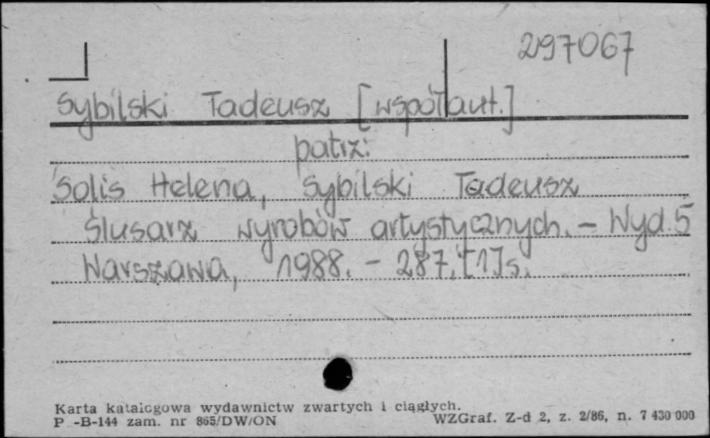 297067
Sybilski Tadeusz [współaut.]
patrz:
Solis Helena, Sybilski Tadeusz
Ślusarz wyrobów artystycznych. - Wyd. 5
Warszawa, 1988. - 287, [1] s.
Karta katalogowa wydawnictw zwartych i ciągłych.
P -B-144 zam. nr 865/DW/ON WZGraf. Z-d 2, z. 2/86, n. 7 430 000